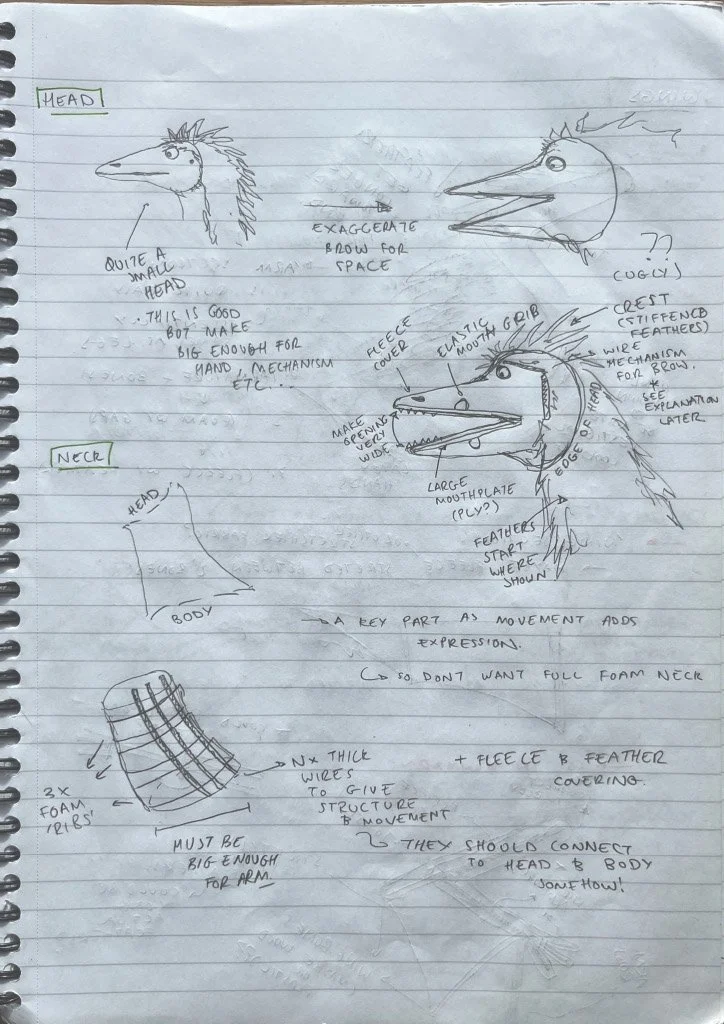 HEAD
QUITE A
SMALL
HEAD
. THIS IS GOOD
BUT MAKE
BIG ENOUGH FOR
HAND, MECHANISM
ETC....
EXAGGERATE
BROW FOR
SPACE
??
(UGLY)
FLEECE
COVER
ELASTIC
MOUTH GRIB
CREST
(STIFFENED
FEATHERS)
WIRE
MECHANISM
FOR BROW.
*
SEE
EXPLANATION
LATER
MAKE
OPENING
VERY
WIDE
EDGE OF HEAD
LARGE
MOUTHPLATE
(PLY?)
FEATHERS
START
WHERE
SHOWN
NECK
HEAD
BODY
→ A KEY PART AS MOVEMENT ADDS
EXPRESSION.
↪ SO DONT WANT FULL FOAM NECK
3X
FOAM
'RIBS'
NX THICK
WIRES
TO GIVE
STRUCTURE
& MOVEMENT
MUST BE
BIG ENOUGH
FOR ARM
+ FLEECE & FEATHER
COVERING.
THEY SHOULD CONNECT
TO HEAD & BODY
SOMEHOW!